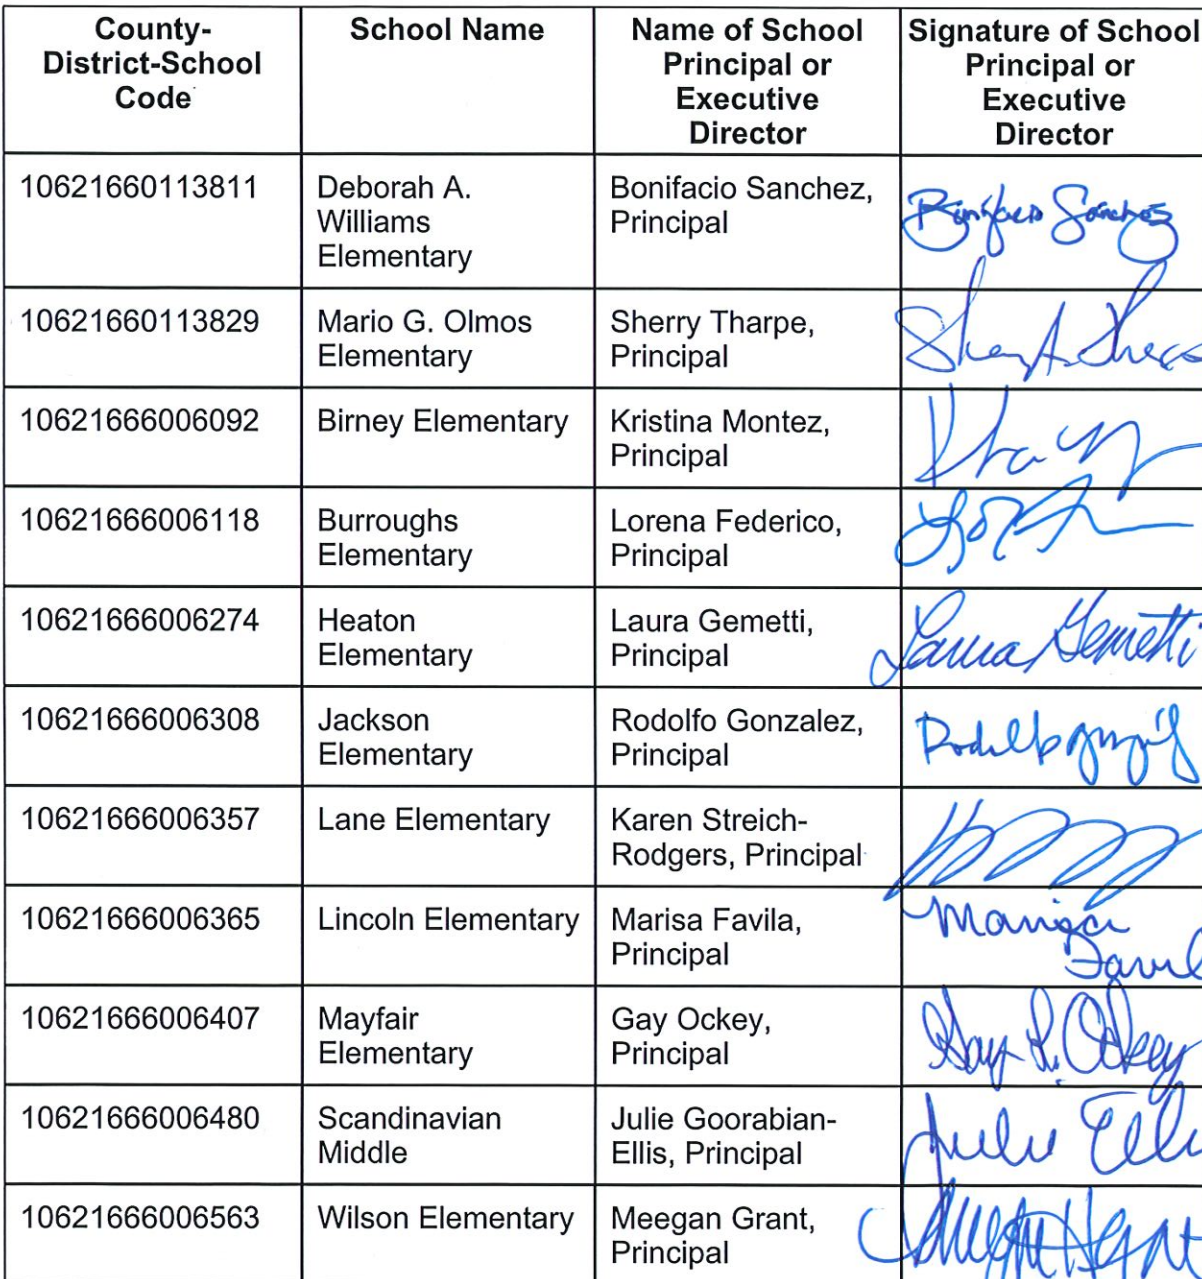 County-
District-School
Code
School Name
Name of School
Principal or
Executive
Director
Signature of School
Principal or
Executive
Director
10621660113811
Deborah A.
Williams
Elementary
Bonifacio Sanchez,
Principal
Bonifacio Sanchez
10621660113829
Mario G. Olmos
Elementary
Sherry Tharpe,
Principal
10621666006092
Birney Elementary
Kristina Montez,
Principal
10621666006118
Burroughs
Elementary
Lorena Federico,
Principal
10621666006274
Heaton
Elementary
Laura Gemetti,
Principal
Laura Gemetti
10621666006308
Jackson
Elementary
Rodolfo Gonzalez,
Principal
10621666006357
Lane Elementary
Karen Streich-
Rodgers, Principal
10621666006365
Lincoln Elementary
Marisa Favila,
Principal
Marisa
10621666006407
Mayfair
Elementary
Gay Ockey,
Principal
Gay R. Ockey
10621666006480
Scandinavian
Middle
Julie Goorabian-
Ellis, Principal
Julie Elli
10621666006563
Wilson Elementary
Meegan Grant,
Principal